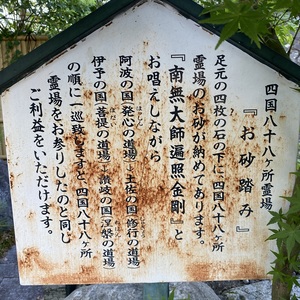 四国八十八ヶ所霊場
『お砂踏み』
足元の四枚の石の下に四国八十八ヶ所
霊場のお砂が納めてあります。
『南無大師遍照金剛』と
お唱えしながら
阿波の国発心の道場〜土佐の国修行の道場
伊予の国菩提の道場〜讃岐の国涅槃の道場
の順に一巡致しますと四国八十八ヶ所
霊場をお参りしたのと同じ
ご利益をいただけます。